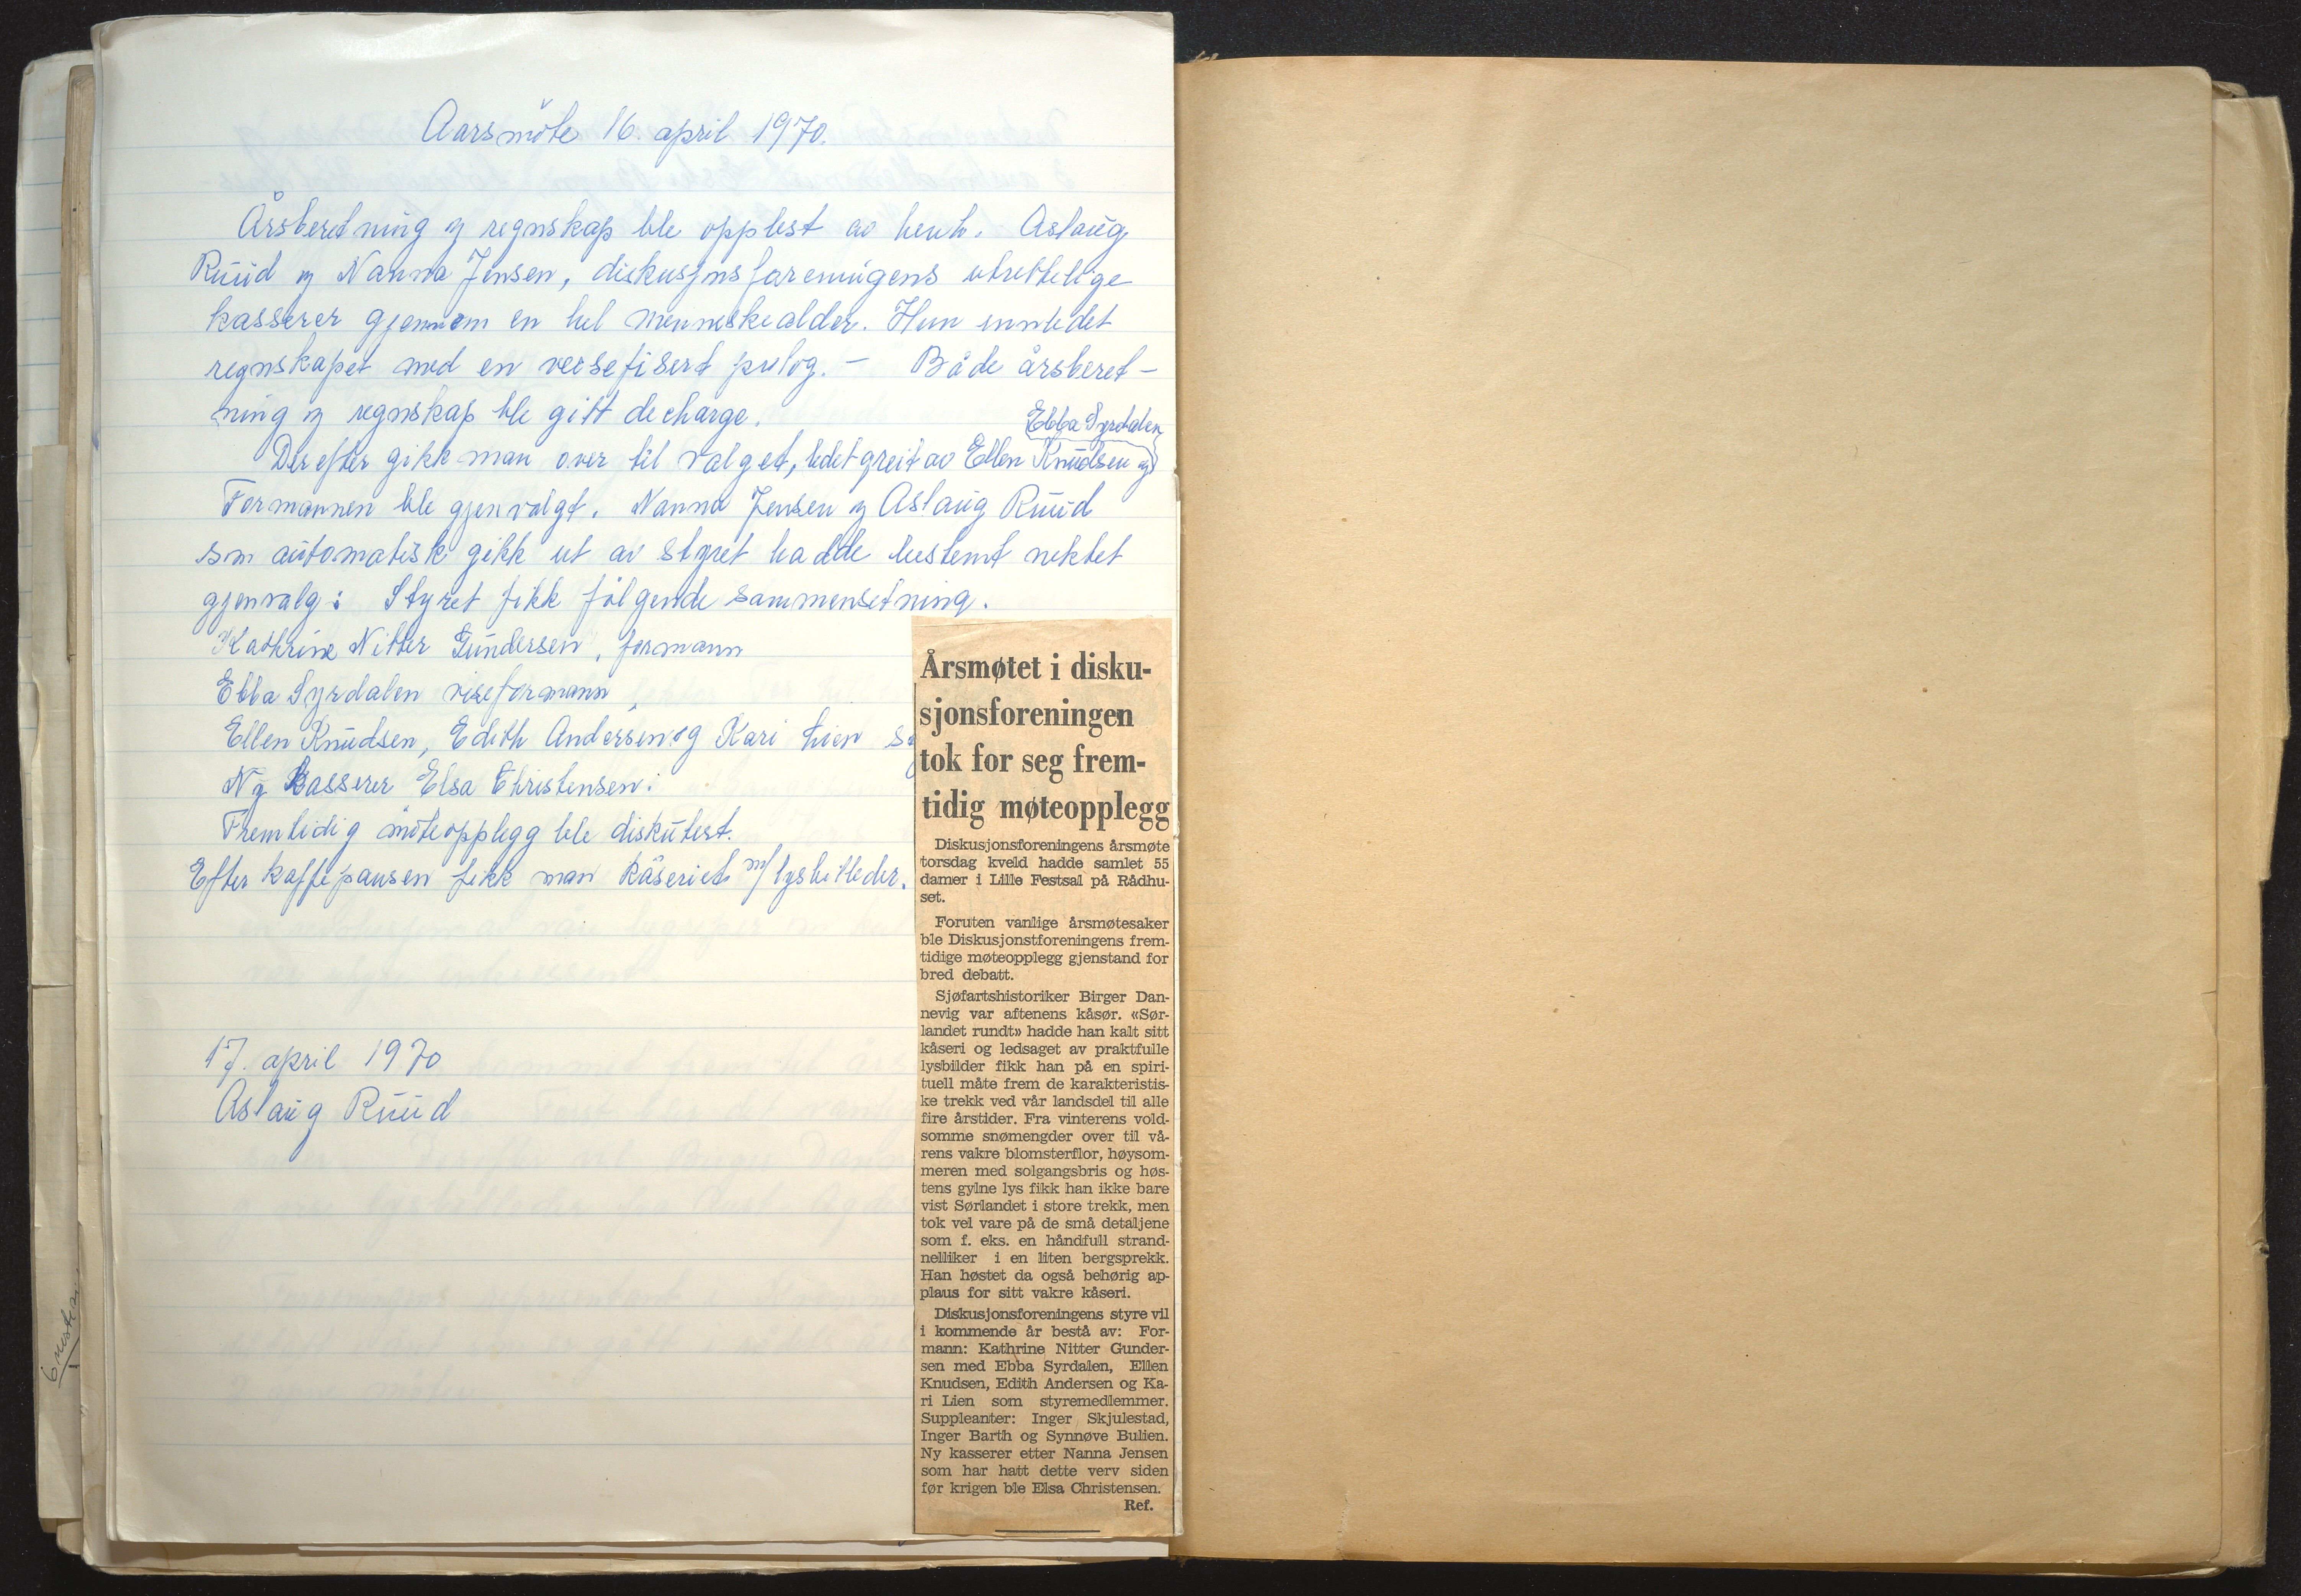 Aarsmöte 16. april 1970.
Årsberetning og regnskap ble opplest av henh. Aslaug
Ruud og Nanna Jensen, diskusjonsforeningens utrettelige
kasserer gjennom en hel menneskealder. Hun innledet
regnskapet med en versefisert prolog. - Både årsberet-
ning og regnskap ble gitt decharge.
Ebba Syrdalen
Derefter gikk man over til valget, ledet greit av Ellen Knudsen og
Formannen ble gjenvalgt. Nanna Jensen og Aslaug Ruud
som automatisk gikk ut av styret hadde bestemt nektet
gjenvalg: Styret fikk fölgende sammensetning.
Kathrine Nitter Gundersen, formann
Ebba Syrdalen viseformann
Ellen Knudsen, Edith Andersen og Kari Lien
Ny Kasserer Elsa Christensen.
Fremtidig möteopplegg ble diskutert.
Efter kaffepausen fikk man kåseriet m/ lysbilleder.
17. april 1970
Aslaug Ruud
Årsmøtet i disku-
sjonsforeningen
tok for seg frem-
tidig møteopplegg
Diskusjonsforeningens årsmøte
torsdag kveld hadde samlet 55
damer i Lille Festsal på Rådhu-
set.
Foruten vanlige årsmøtesaker
ble Diskusjonstforeningens frem-
tidige møteopplegg gjenstand for
bred debatt.
Sjøfartshistoriker Birger Dan-
nevig var aftenens kåsør. «Sør-
landet rundt» hadde han kalt sitt
kåseri og ledsaget av praktfulle
lysbilder fikk han på en spiri-
tuell måte frem de karakteristis-
ke trekk ved vår landsdel til alle
fire årstider. Fra vinterens vold-
somme snømengder over til vå-
rens vakre blomsterflor, høysom-
meren med solgangsbris og høs-
tens gylne lys fikk han ikke bare
vist Sørlandet i store trekk, men
tok vel vare på de små detaljene
som f. eks. en håndfull strand-
nelliker i en liten bergsprekk.
Han høstet da også behørig ap-
plaus for sitt vakre kåseri.
Diskusjonsforeningens styre vil
i kommende år bestå av: For-
mann: Kathrine Nitter Gunder-
sen med Ebba Syrdalen, Ellen
Knudsen, Edith Andersen og Ka-
ri Lien som styremedlemmer.
Suppleanter: Inger Skjulestad,
Inger Barth og Synnøve Bulien.
Ny kasserer etter Nanna Jensen
som har hatt dette verv siden
før krigen ble Elsa Christensen.
Ref.